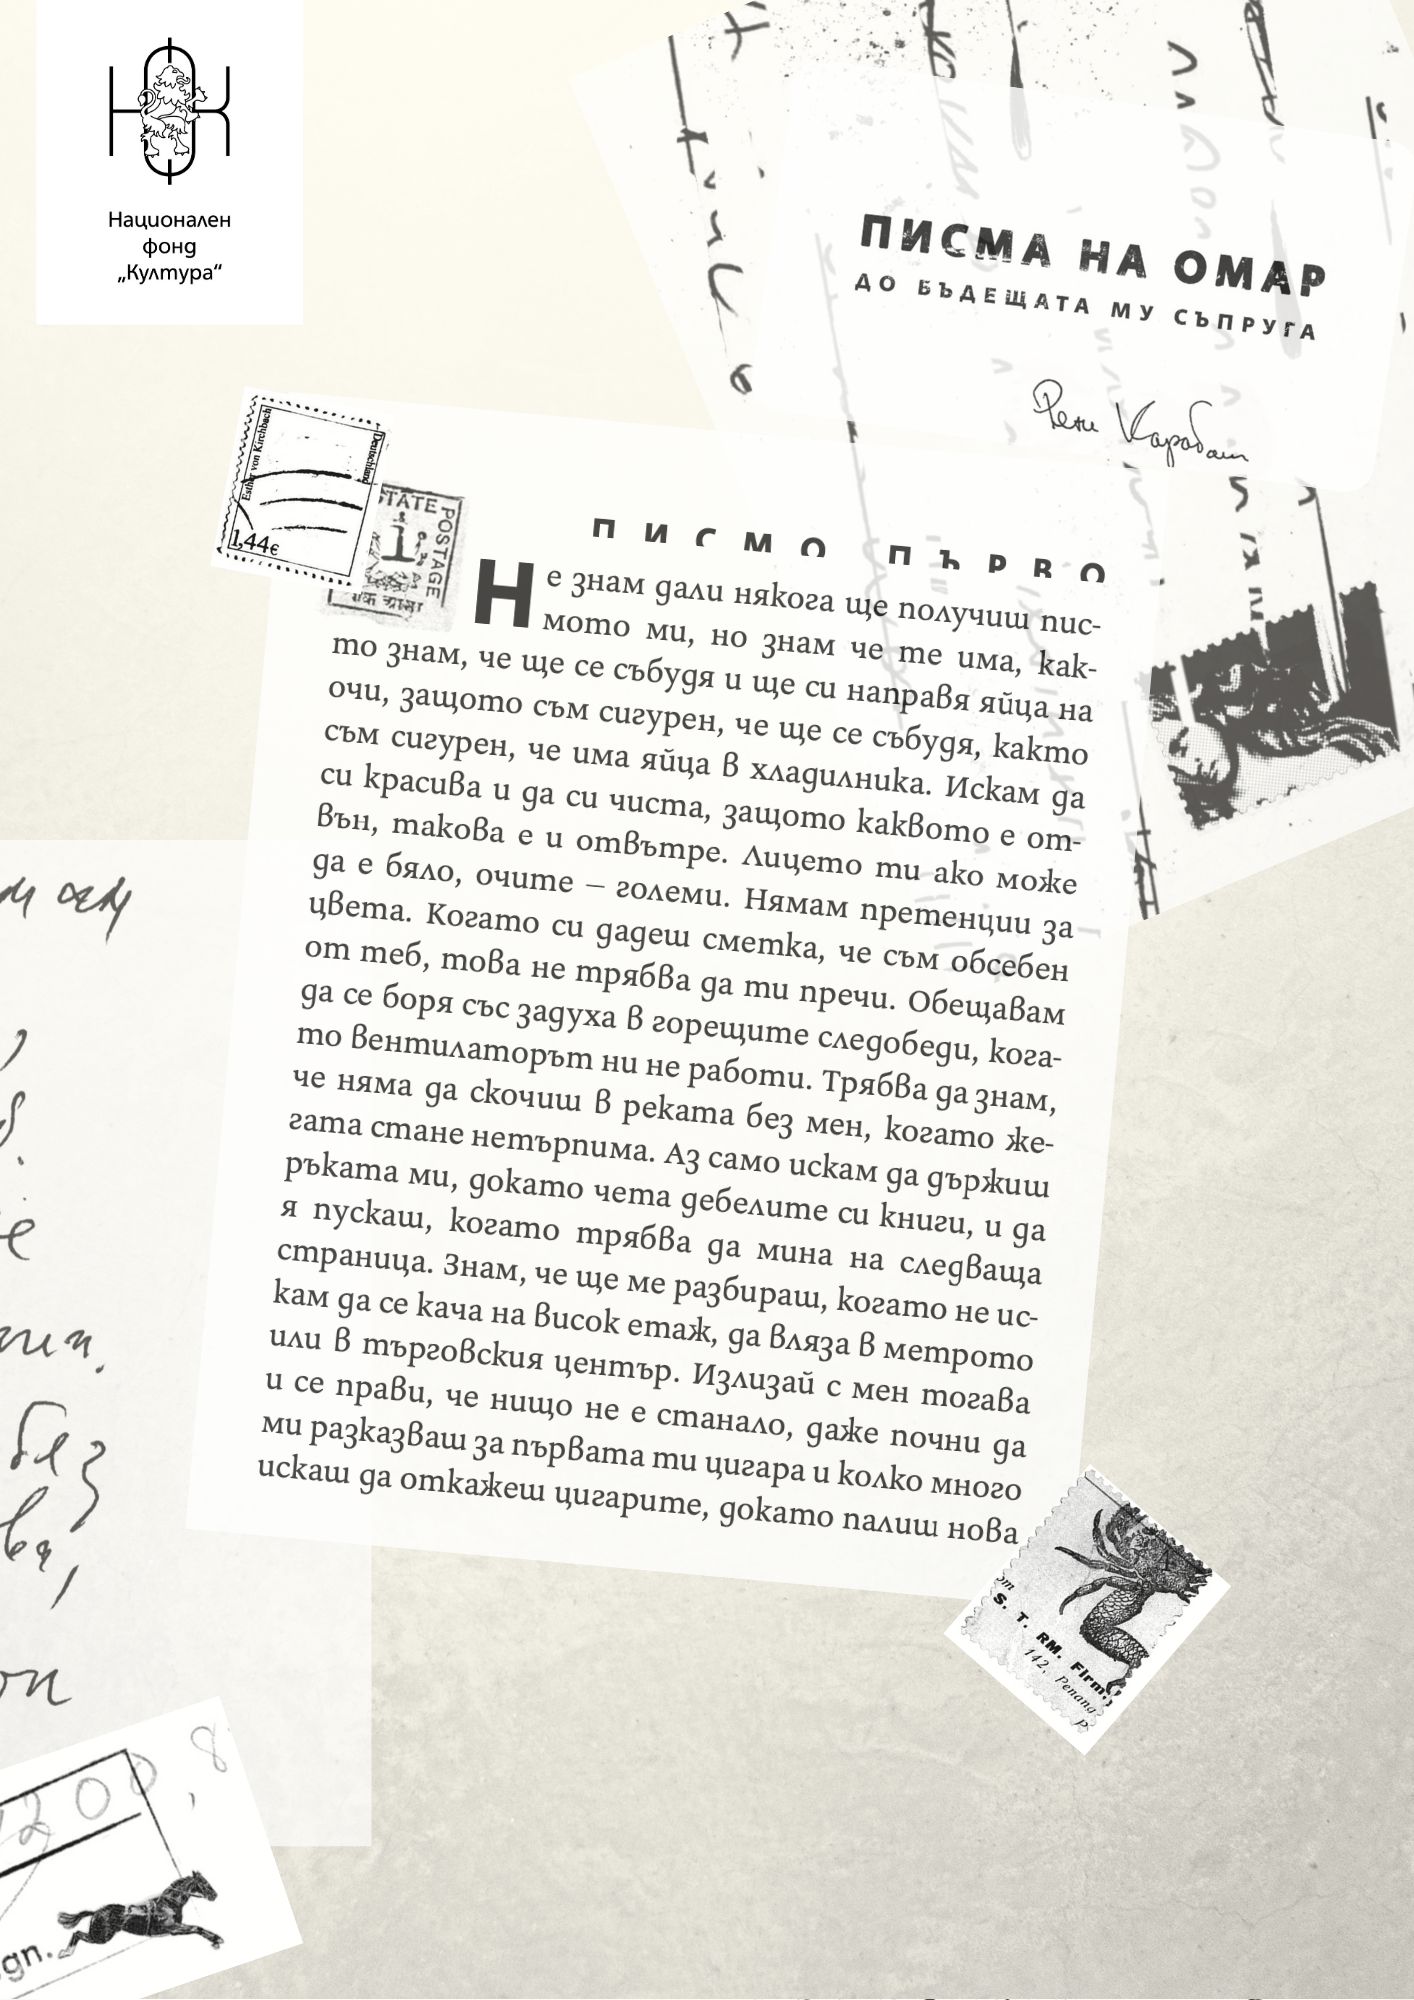 Национален
фонд
„Култура“
ПИСМА НА ОМАР
ДО БЪДЕЩАТА МУ СЪПРУГА
Рени Карабаш
Esther von Kirchbach
Deutschland
1,44€
STATE
POSTAGE
ПИСМО ПЪРВО
Не знам дали някога ще получиш пис-
мото ми, но знам че те има, как-
то знам, че ще се събудя и ще си направя яйца на
очи, защото съм сигурен, че ще се събудя, както
съм сигурен, че има яйца в хладилника. Искам да
си красива и да си чиста, защото каквото е от-
вън, такова е и отвътре. Лицето ти ако може
да е бяло, очите – големи. Нямам претенции за
цвета. Когато си дадеш сметка, че съм обсебен
от теб, това не трябва да ти пречи. Обещавам
да се боря със задуха в горещите следобеди, кога-
то вентилаторът ни не работи. Трябва да знам,
че няма да скочиш в реката без мен, когато же-
гата стане нетърпима. Аз само искам да държиш
ръката ми, докато чета дебелите си книги, и да
я пускаш, когато трябва да мина на следваща
страница. Знам, че ще ме разбираш, когато не ис-
кам да се кача на висок етаж, да вляза в метрото
или в търговския център. Излизай с мен тогава
и се прави, че нищо не е станало, даже почни да
ми разказваш за първата ти цигара и колко много
искаш да откажеш цигарите, докато палиш нова
S. T. RM. Firm.
142, Penang
без
gn.